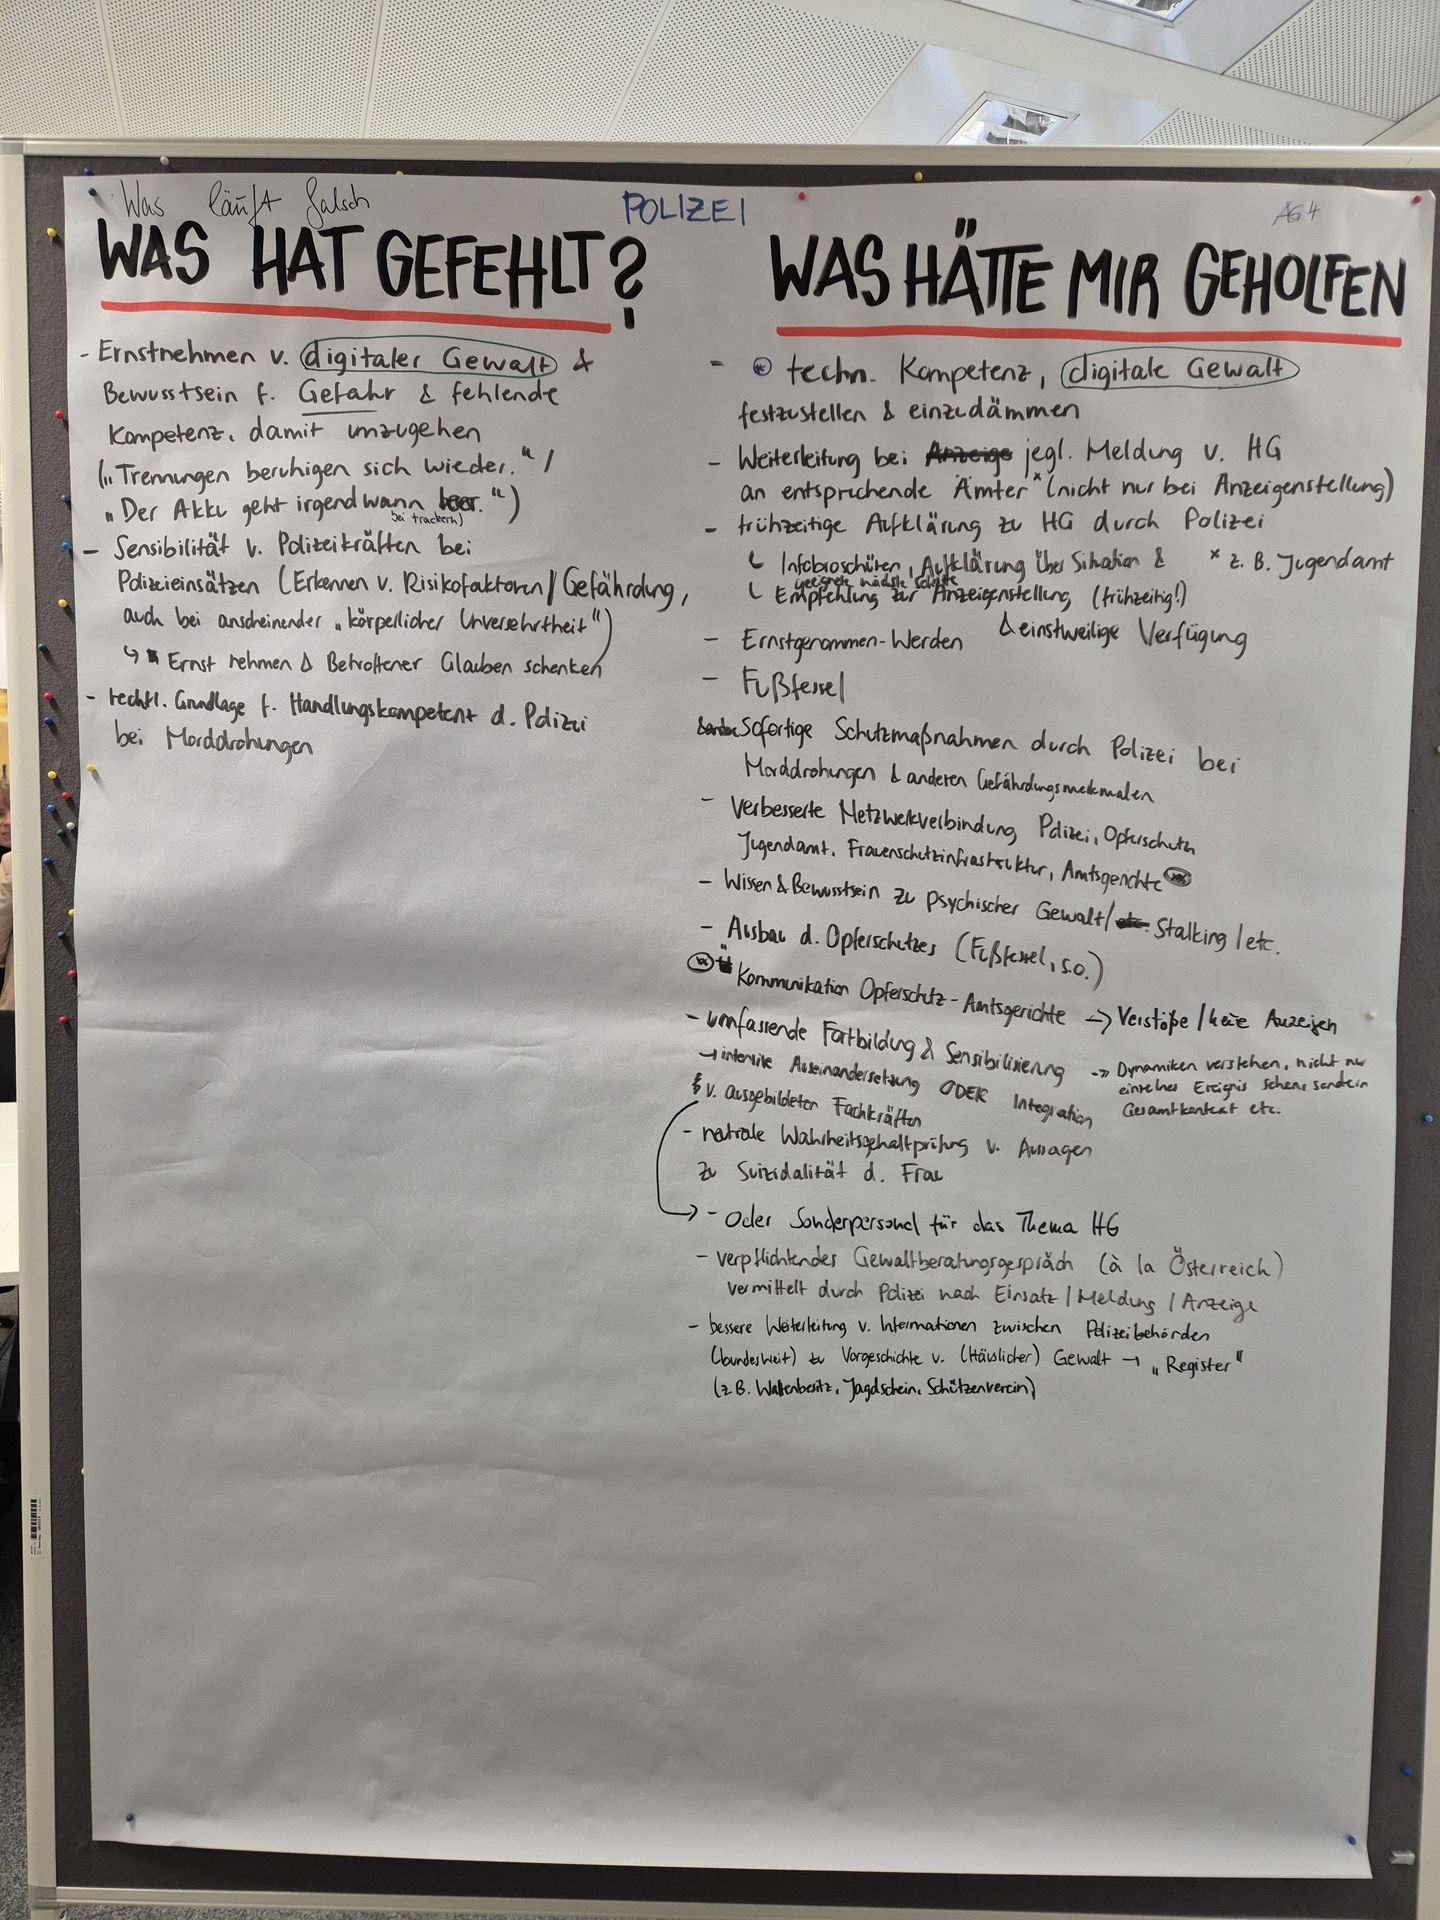 Was läuft falsch
POLIZEI
AG 4
WAS HAT GEFEHLT?
- Ernstnehmen v. digitaler Gewalt &
Bewusstsein f. Gefahr & fehlende
Kompetenz, damit umzugehen
(„Trennungen beruhigen sich wieder.“ /
„Der Akku geht irgendwann leer.“)
bei trackern)
- Sensibilität v. Polizeikräften bei
Polizeieinsätzen (Erkennen v. Risikofaktoren / Gefährdung,
auch bei anscheinender „körperlicher Unversehrtheit“)
↳ Ernst nehmen & Betroffener Glauben schenken
- rechtl. Grundlage f. Handlungskompetenz d. Polizei
bei Morddrohungen
WAS HÄTTE MIR GEHOLFEN
- * techn. Kompetenz, digitale Gewalt
festzustellen & einzudämmen
- Weiterleitung bei Anzeige jegl. Meldung v. HG
an entsprechende Ämter* (nicht nur bei Anzeigenstellung)
- frühzeitige Aufklärung zu HG durch Polizei
↳ Infobroschüren, Aufklärung über Situation &
* z. B. Jugendamt
geeignete nächste Schritte
↳ Empfehlung zur Anzeigenstellung (frühzeitig!)
& einstweilige Verfügung
- Ernstgenommen-Werden
- Fußfessel
Sofortige Schutzmaßnahmen durch Polizei bei
Morddrohungen & anderen Gefährdungsmerkmalen
- verbesserte Netzwerkverbindung Polizei, Opferschutz
Jugendamt, Frauenschutzinfrastruktur, Amtsgerichte
- Wissen & Bewusstsein zu psychischer Gewalt / etc. Stalking / etc.
- Ausbau d. Opferschutzes (Fußfessel, s.o.)
Kommunikation Opferschutz - Amtsgerichte -> Verstöße / neue Anzeigen
- umfassende Fortbildung & Sensibilisierung
-> Dynamiken verstehen, nicht nur
einzelnes Ereignis sehen, sondern
Gesamtkontext etc.
→ intensive Auseinandersetzung ODER Integration
v. ausgebildeten Fachkräften
- neutrale Wahrheitsgehaltprüfung v. Aussagen
zu Suizidalität d. Frau
- Oder Sonderpersonal für das Thema HG
- verpflichtendes Gewaltberatungsgespräch (à la Österreich)
vermittelt durch Polizei nach Einsatz / Meldung / Anzeige
- bessere Weiterleitung v. Informationen zwischen Polizeibehörden
(bundesweit) zu Vorgeschichte v. (Häuslicher) Gewalt → „Register“
(z.B. Waffenbesitz, Jagdschein, Schützenverein)